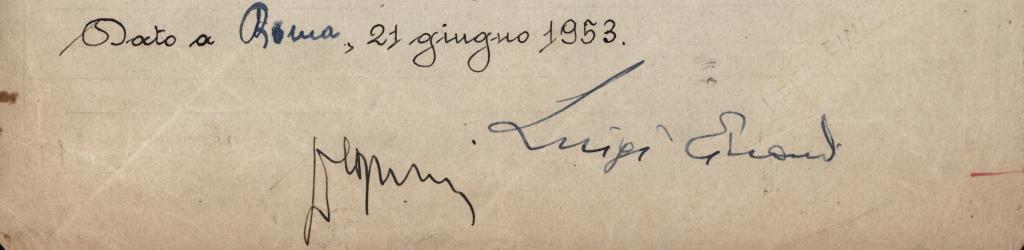 Dato a Roma, 21 giugno 1953.
Luigi Einaudi